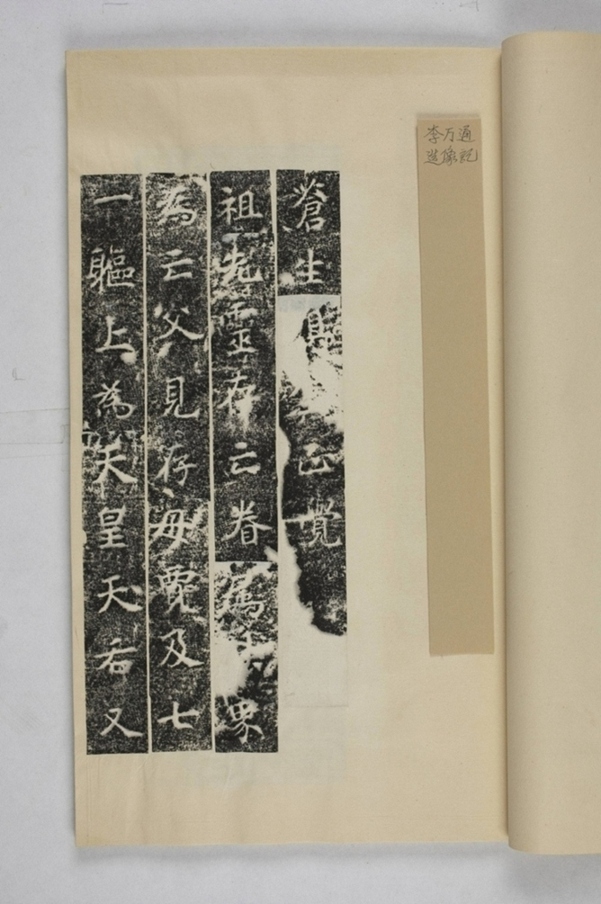 李万通
造像記
一軀上為天皇天后又
為亡父見存母及七
祖先靈存亡眷屬界
蒼生正覺